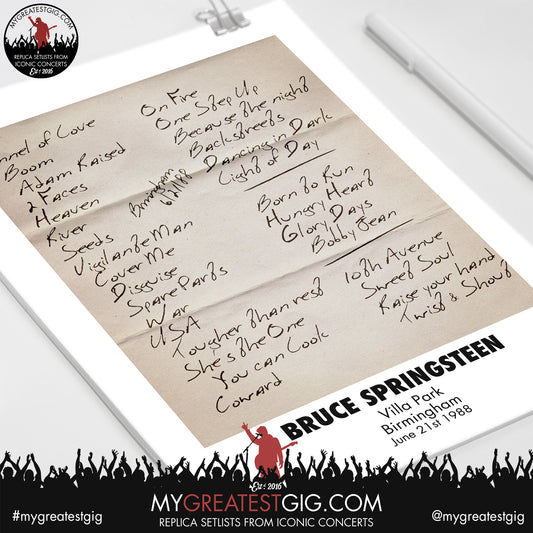 MYGREATESTGIG.COM
REPLICA SETLISTS FROM
ICONIC CONCERTS
Est 2016
nnel of Love
Boom
Adam Raised
2 Faces
Heaven
River
Seeds
Vigilante Man
Cover Me
Disguise
Spare Parts
War
USA
Tougher than rest
She's the One
You can Look
Coward
Birmingham
On Fire
One Step Up
Because the night
Backstreets
Dancing in Dark
Light of Day
Born to Run
Hungry Heart
Glory Days
Bobby Jean
10th Avenue
Sweet Soul
Raise your hand
Twist & Shout
BRUCE SPRINGSTEEN
Villa Park
Birmingham
June 21st 1988
Est 2016
#mygreatestgig
MYGREATESTGIG.COM
REPLICA SETLISTS FROM ICONIC CONCERTS
@mygreatestgig